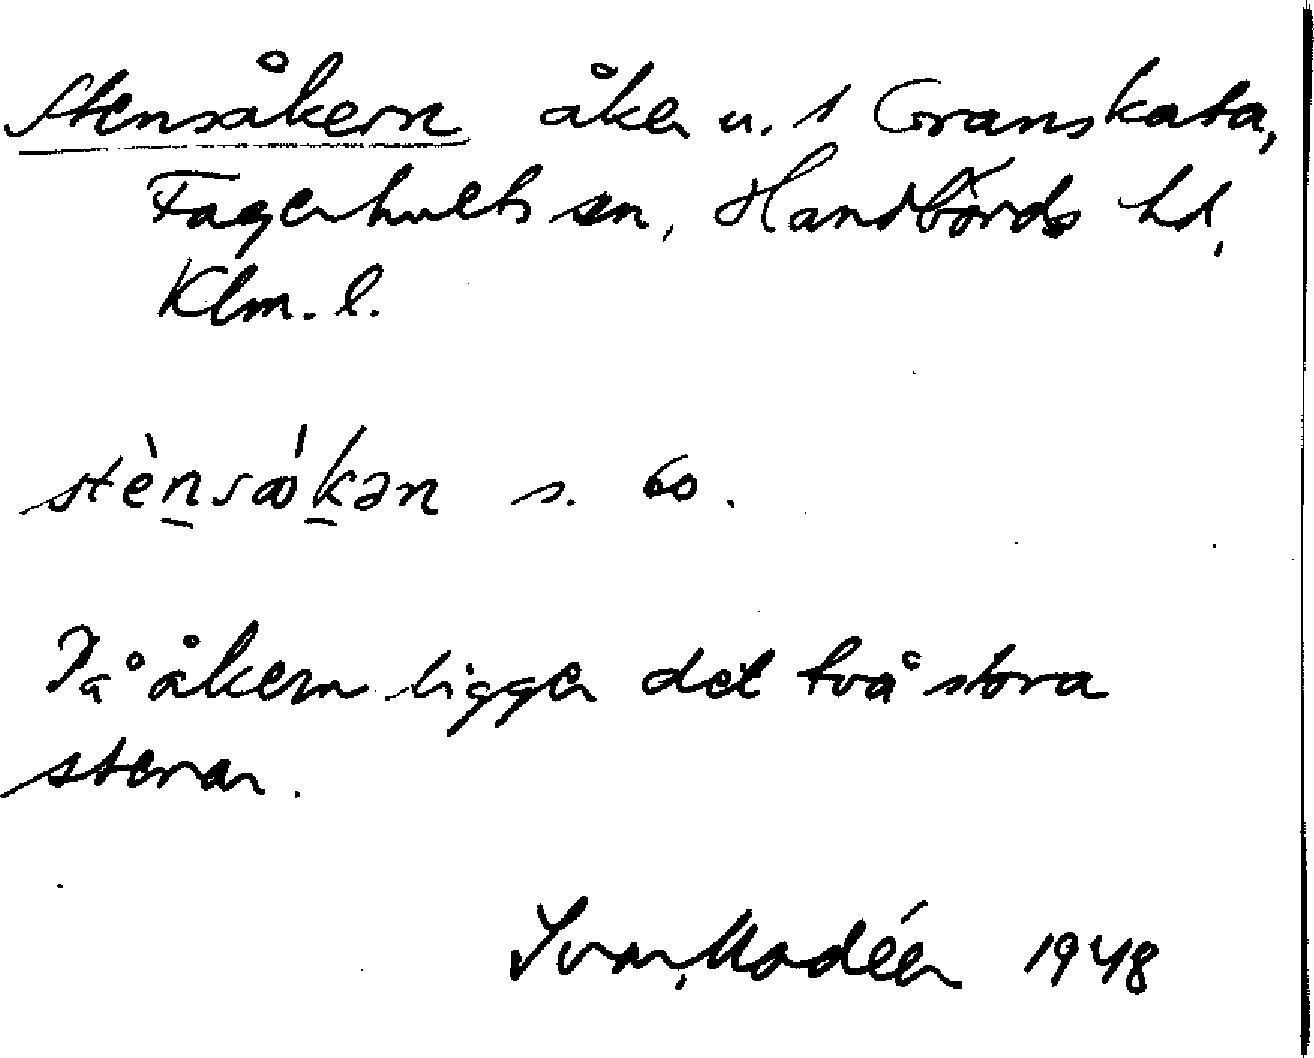 Stensåkern åker u. 1 Granskata,
Fagerhults sn, Handbörds hd,
Klm. l.
stènsǻkən s. 60.
På åkern ligger det två stora
stenar.
Ivar Modéer 1948